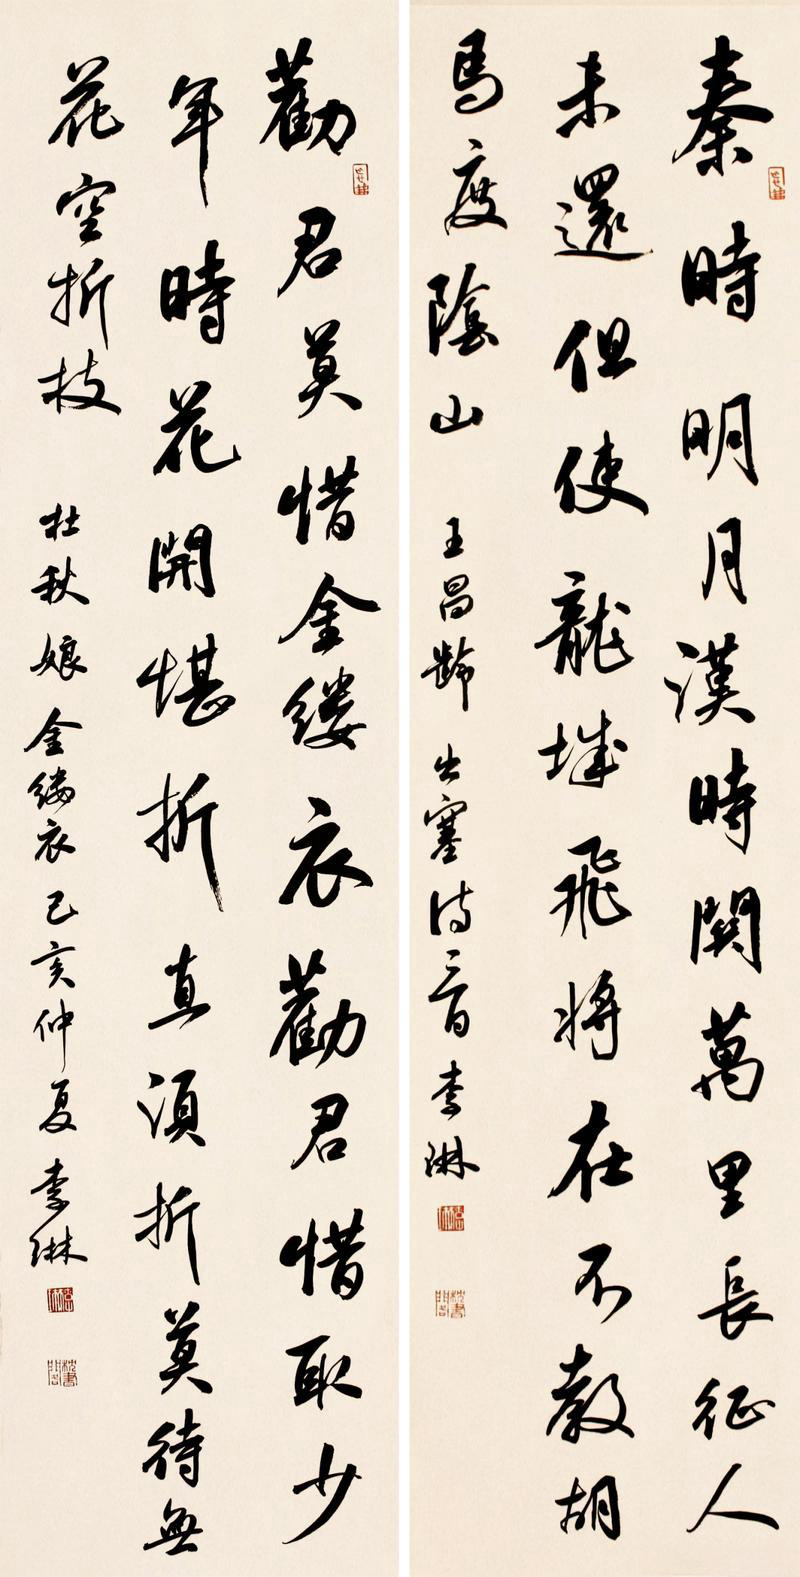 秦時明月漢時關萬里長征人
未還但使龍城飛將在不教胡
馬度陰山
王昌齡出塞詩一首李琳
勸君莫惜金縷衣勸君惜取少
年時花開堪折直須折莫待無
花空折枝
杜秋娘金縷衣己亥仲夏李琳